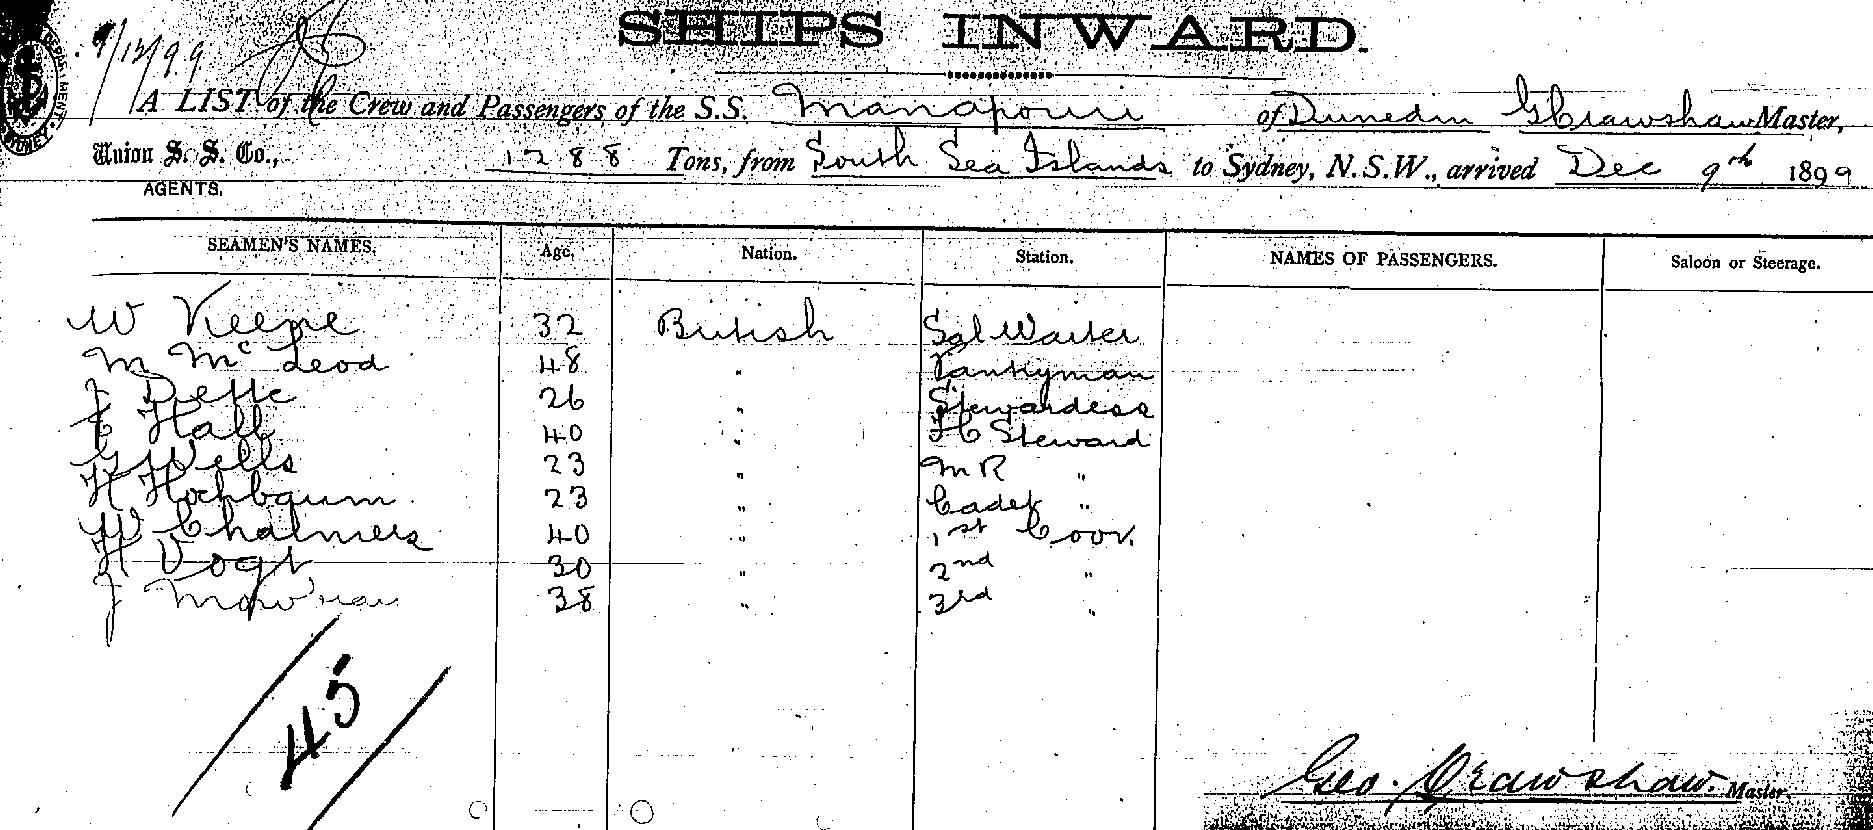 SHIPS INWARD.
9/12/99
A LIST of the Crew and Passengers of the S.S. Manapouri of Dunedin G Crawshaw Master,
Union S. S. Co., 1288 Tons, from South Sea Islands to Sydney, N.S.W., arrived Dec 9th 1899
AGENTS.
SEAMEN'S NAMES. Age. Nation. Station. NAMES OF PASSENGERS. Saloon or Steerage.
W Keene 32 British Sal Waiter
M McLeod 48 " Pantryman
J 26 " Stewardess
Hall 40 " FC Steward
G Wells 23 " MR "
H Hochbaum 23 " Cadet "
W Chalmers 40 " 1st Cook
H Vogt 30 " 2nd "
J 38 " 3rd "
45
Geo. Crawshaw. Master